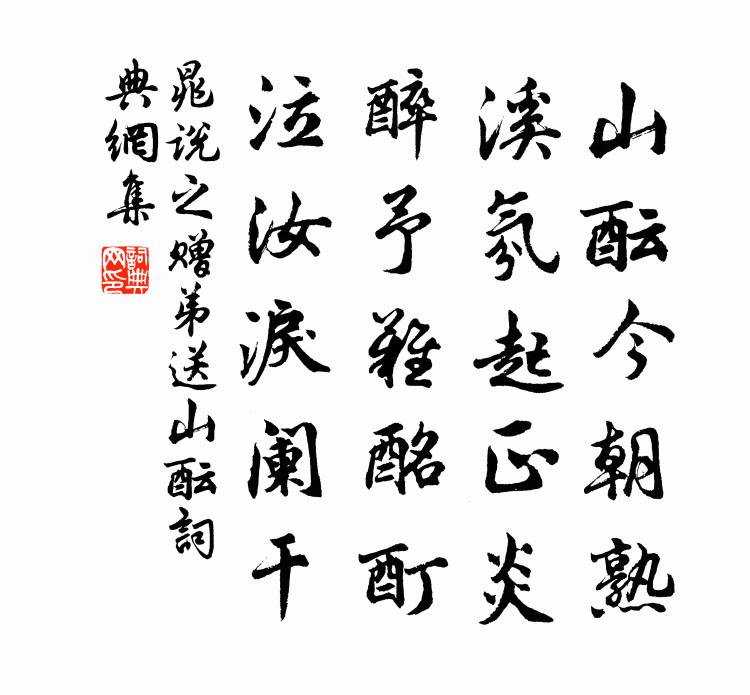 山酝今朝熟
溪氛起正炎
醉予难酩酊
泣汝泪阑干
晁说之赠弟送山酝詞
典網集
詞典网印